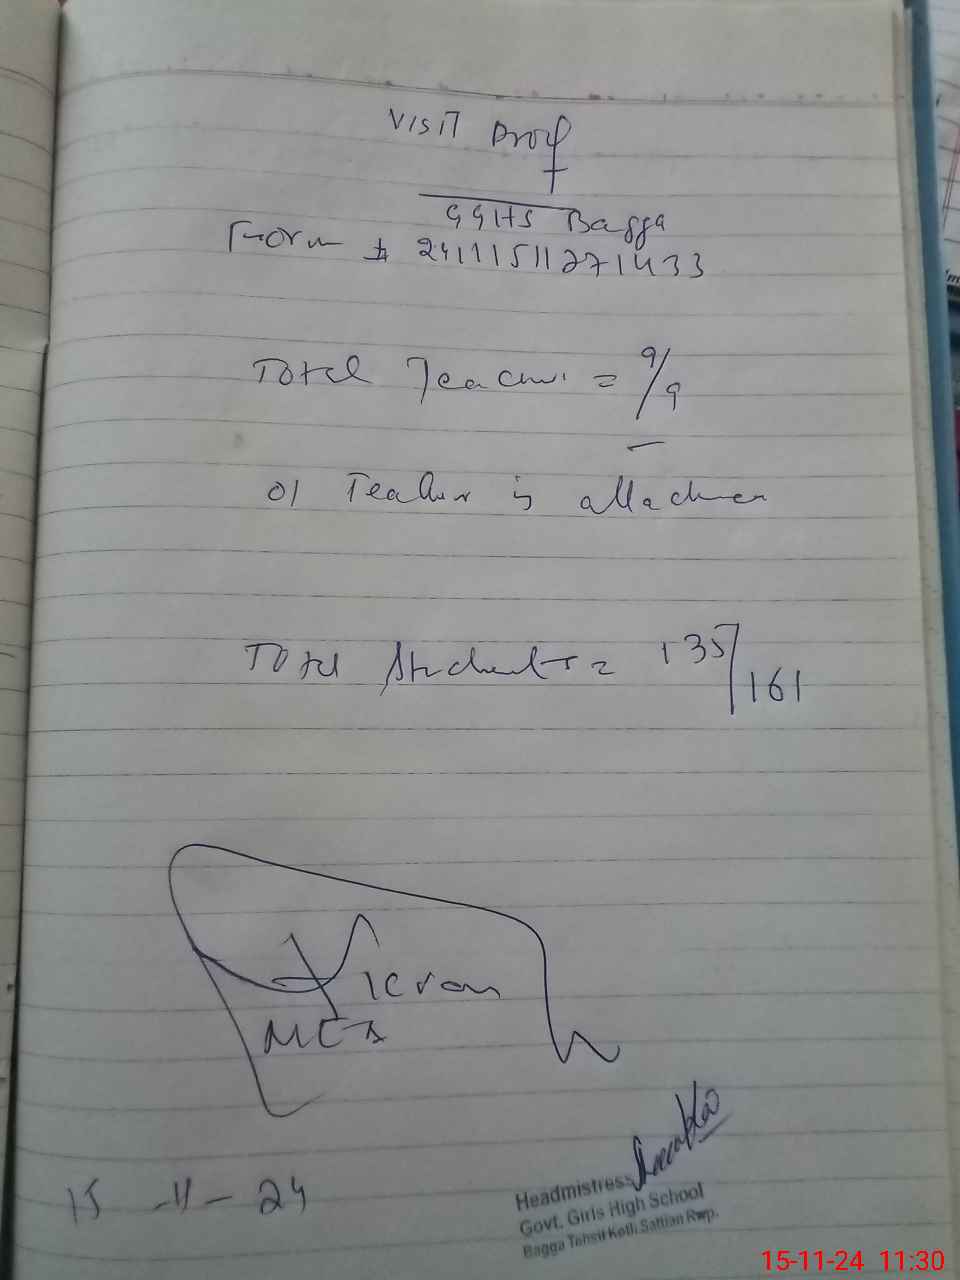 VISIT Proof
GGHS Bagga
Form # 24111511271433
Total Teacher = 9/9
01 Teacher is attached
Total Students = 135/161
Ikram
MEA
15-11-24
Headmistress
Govt. Girls High School
Bagga Tehsil Kotli Sattian Rwp.
15-11-24 11:30